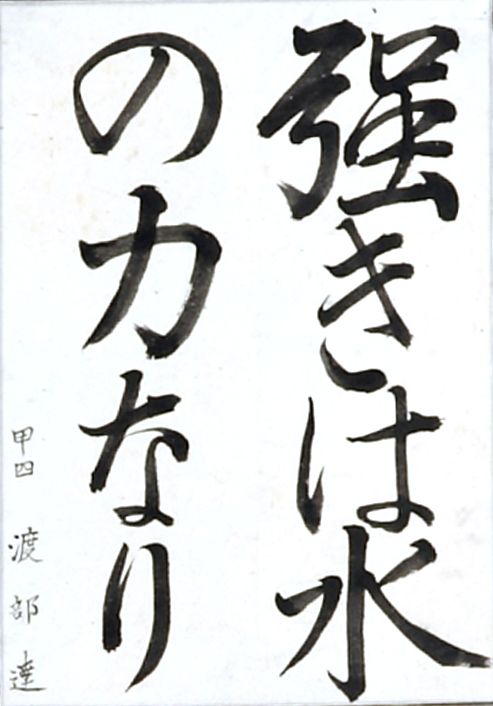 強きは水
の力なり
甲四 渡部達